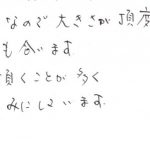 なので大きさが頂度
も合います
頂くことが多く
みにしています